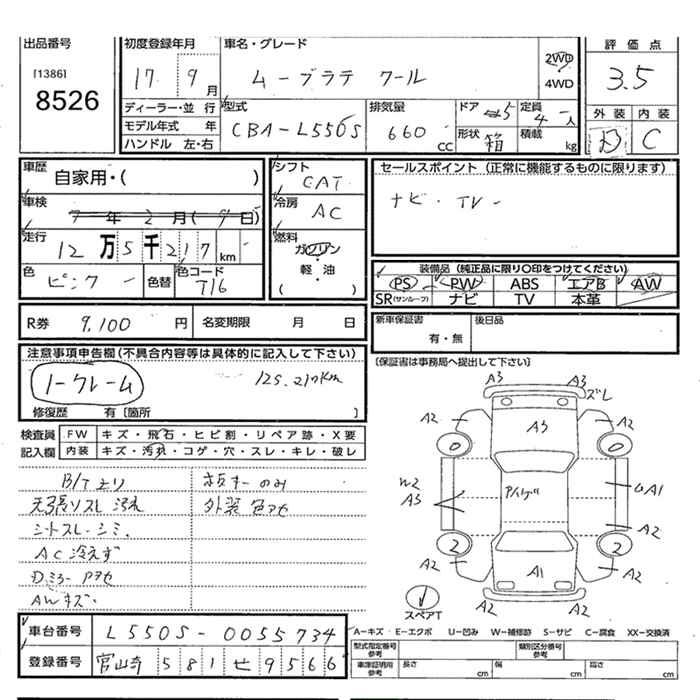 出品番号
[1386]
8526
初度登録年月
17 9月
車名・グレード
ムーブラテ クール
2WD
4WD
評価点
3.5
ディーラー・並行
モデル年式 年
ハンドル 左・右
型式
CBA-L550S
排気量
660 CC
ドア 5
形状 箱
定員 4人
積載 kg
外装 内装
C
車歴
自家用・( )
車検
7年2月(9日)
走行
12万5千217km
色
ピンクー
色替
色コード
T16
シフト
CAT
冷房
AC
燃料
ガソリン
・
軽・油
( )
セールスポイント (正常に機能するものに限ります)
ナビ・TV-
装備品 (純正品に限り○印をつけてください)
PS PW ABS エアB AW
SR(サンルーフ) ナビ TV 本革
R券 9,100 円 名変期限 月 日
新車保証書
有・無
後日品
注意事項申告欄(不具合内容等は具体的に記入して下さい)
ノークレーム
125.217Km
修復歴 有〔箇所
〔保証書は事務局へ提出して下さい〕
検査員
記入欄
FW キズ・飛石・ヒビ割・リペア跡・X要
内装 キズ・汚れ・コゲ・穴・スレ・キレ・破レ
B/Tより
天張りスレ 汚れ
シートスレ-シミ.
AC冷えず
AWキズ・
のみ
外装 色アセ
A3 A3 ズレ
A2 A3 A2
W2
A3
A1
A2
2 2
A2 A1 A2
A2 A2
スペアT
A-キズ E-エクボ U-凹み W-補修跡 S-サビ C-腐食 XX-交換済
車台番号 L550S-0055734
登録番号 581 せ 9566
型式指定番号
参考
類別区分番号
参考
車庫証明用
参考
長さ cm 幅 cm 高さ cm